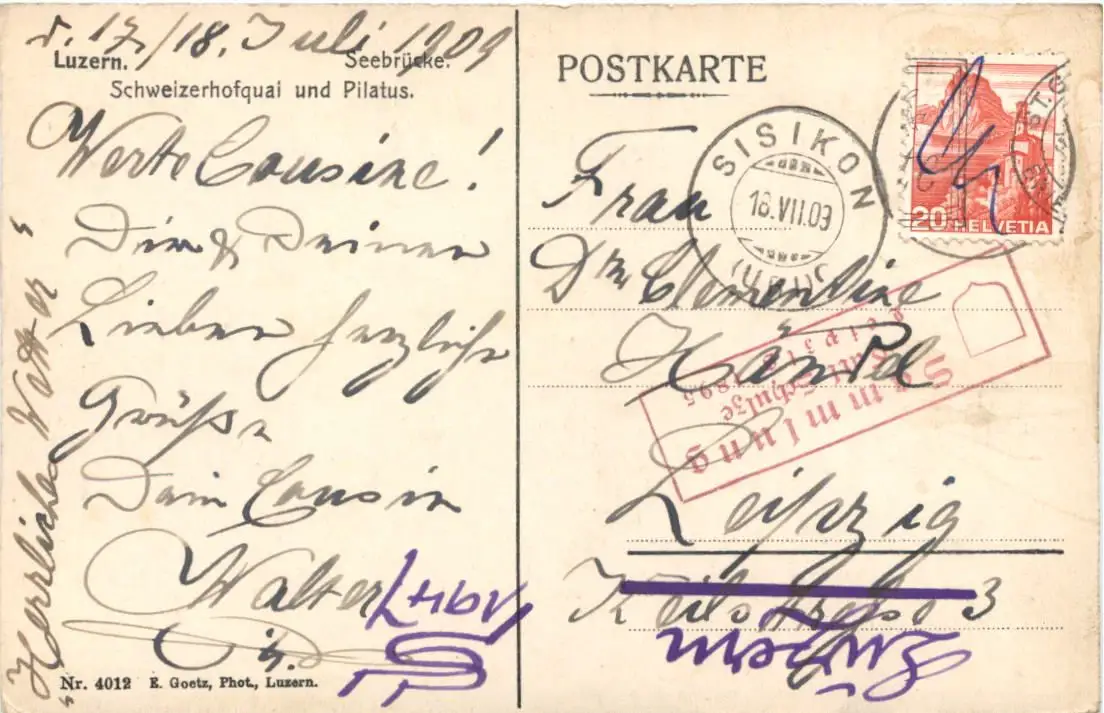 d. 17./18. Juli 1909
Luzern. Seebrücke.
Schweizerhofquai und Pilatus.
Werte Cousine!
Dir & Deinen
Lieben herzliche
Grüße
Dein Cousin
Walter
Herrliches Wetter
Nr. 4012 E. Goetz, Phot., Luzern.
POSTKARTE
SISIKON
18.VII.09
(URI)
20 HELVETIA
Frau
Dr. Clementine
Händel
Leipzig
Keilstraße 3
Sammlung
Karl Schulze
Leipzig
1895
Luzern